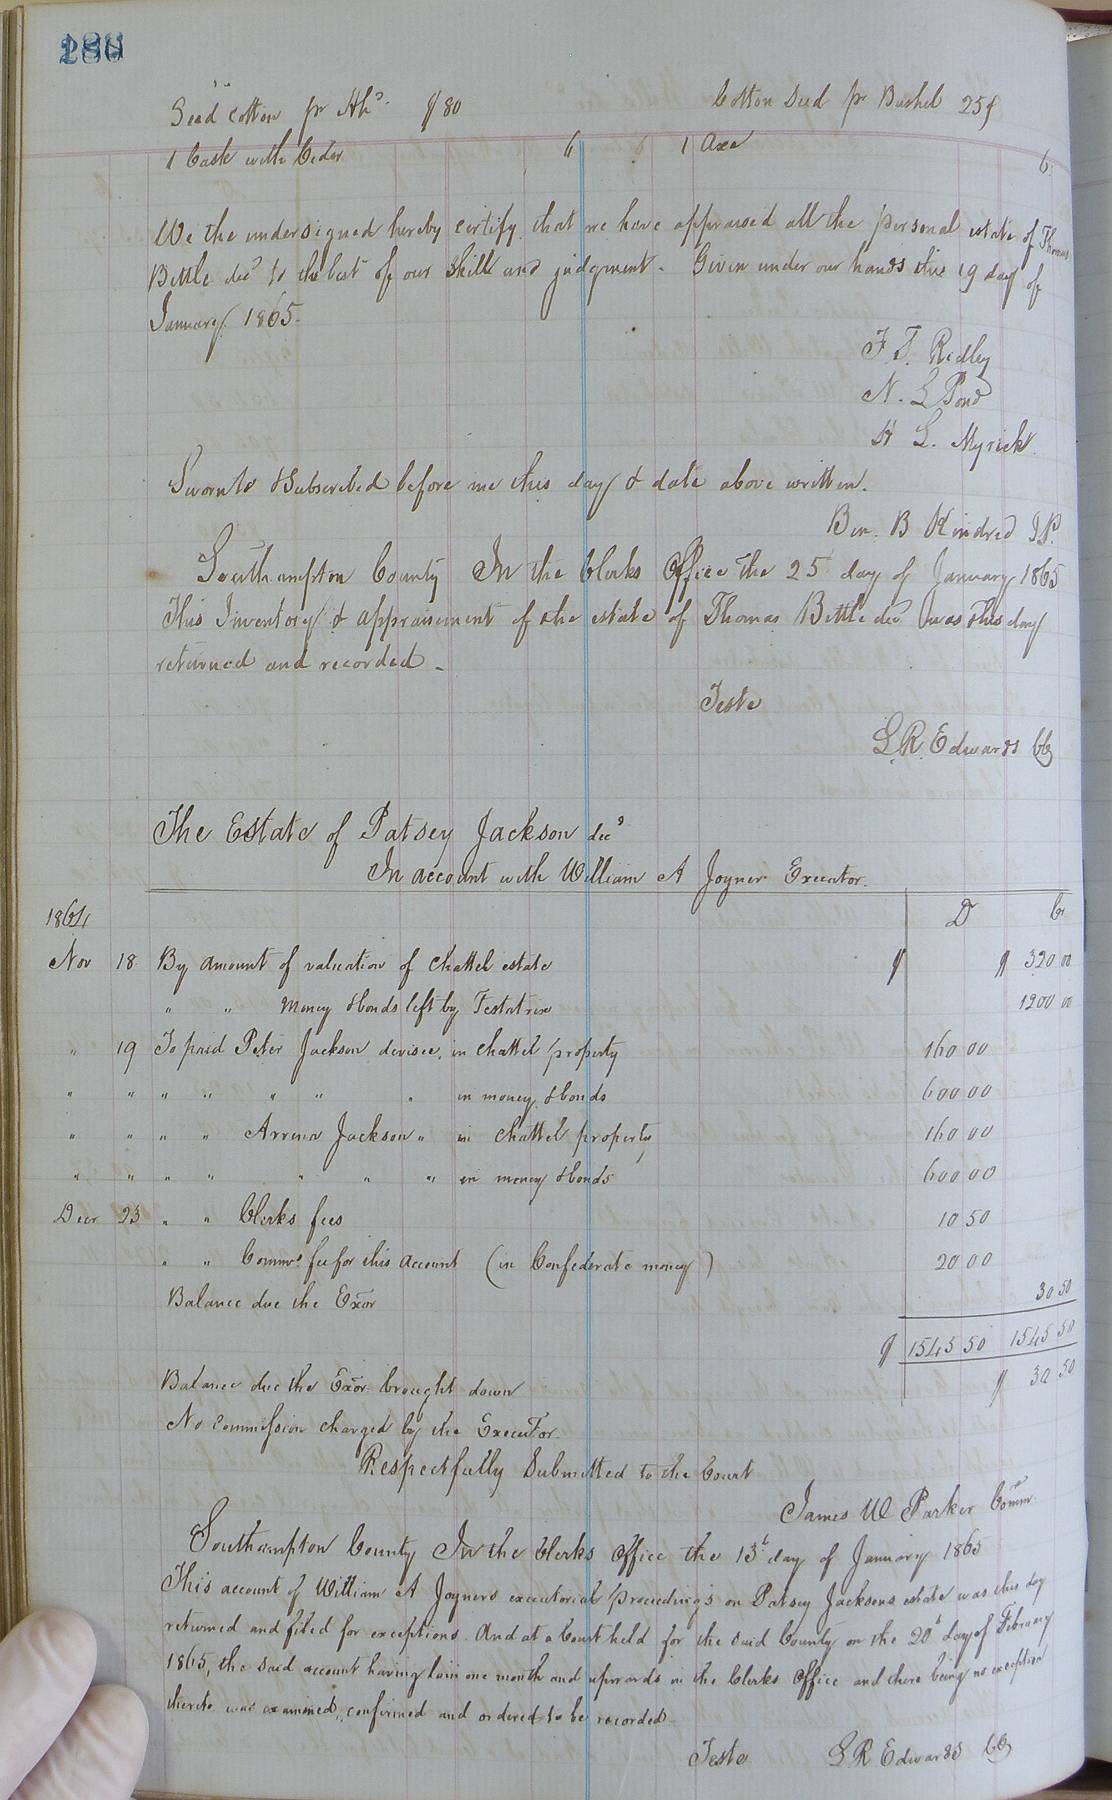 Seed cotton pr Hhd. $80 Cotton Seed pr Bushel 25$
1 Cask with Cider 6 1 Axe 6
We the undersigned hereby certify that we have appraised all the personal estate of Thomas
Bittle decd to the best of our skill and judgment. Given under our hands this 19 day of
January 1865.
F. T. Ridley
N. L Pond
H L. Myrick
Sworn to & subscribed before me this day & date above written.
Ben. B Kindred J.P.
Southampton County In the Clerks Office the 25 day of January 1865
This Inventory & appraisement of the estate of Thomas Bittle decd was this day
returned and recorded _
Teste
L. R. Edwards CC
The Estate of Patsey Jackson decd
In account with William A Joyner Executor.
1864 D Cr
Nov 18 By amount of valuation of chattel estate $ $ 320 00
" " Money & bonds left by Testatrix 1200 00
" 19 To paid Peter Jackson devisee, in chattel property 160 00
" " " " " " " in money & bonds 600 00
" " " " Arrena Jackson " in chattel property 160 00
" " " " " " " in money & bonds 600 00
Decr 23 " " Clerks fees 10 50
" " Commrs fee for this account (in Confederate money) 20 00
Balance due the Exor 30 50
$ 1545 50 1545 50
Balance due the Exor. brought down $ 30 50
No commission charged by the Executor.
Respectfully Submitted to the Court
James W Parker Commr
Southampton County In the Clerks Office the 13th day of January 1865
This account of William A Joyners executorial proceedings on Patsey Jacksons estate was this day
returned and filed for exceptions. And at a Court held for the said County on the 20th day of February
1865, the said account having lain one month and upwards in the Clerks Office and there being no exception
thereto was examined, confirmed and ordered to be recorded
Teste L R Edwards CC